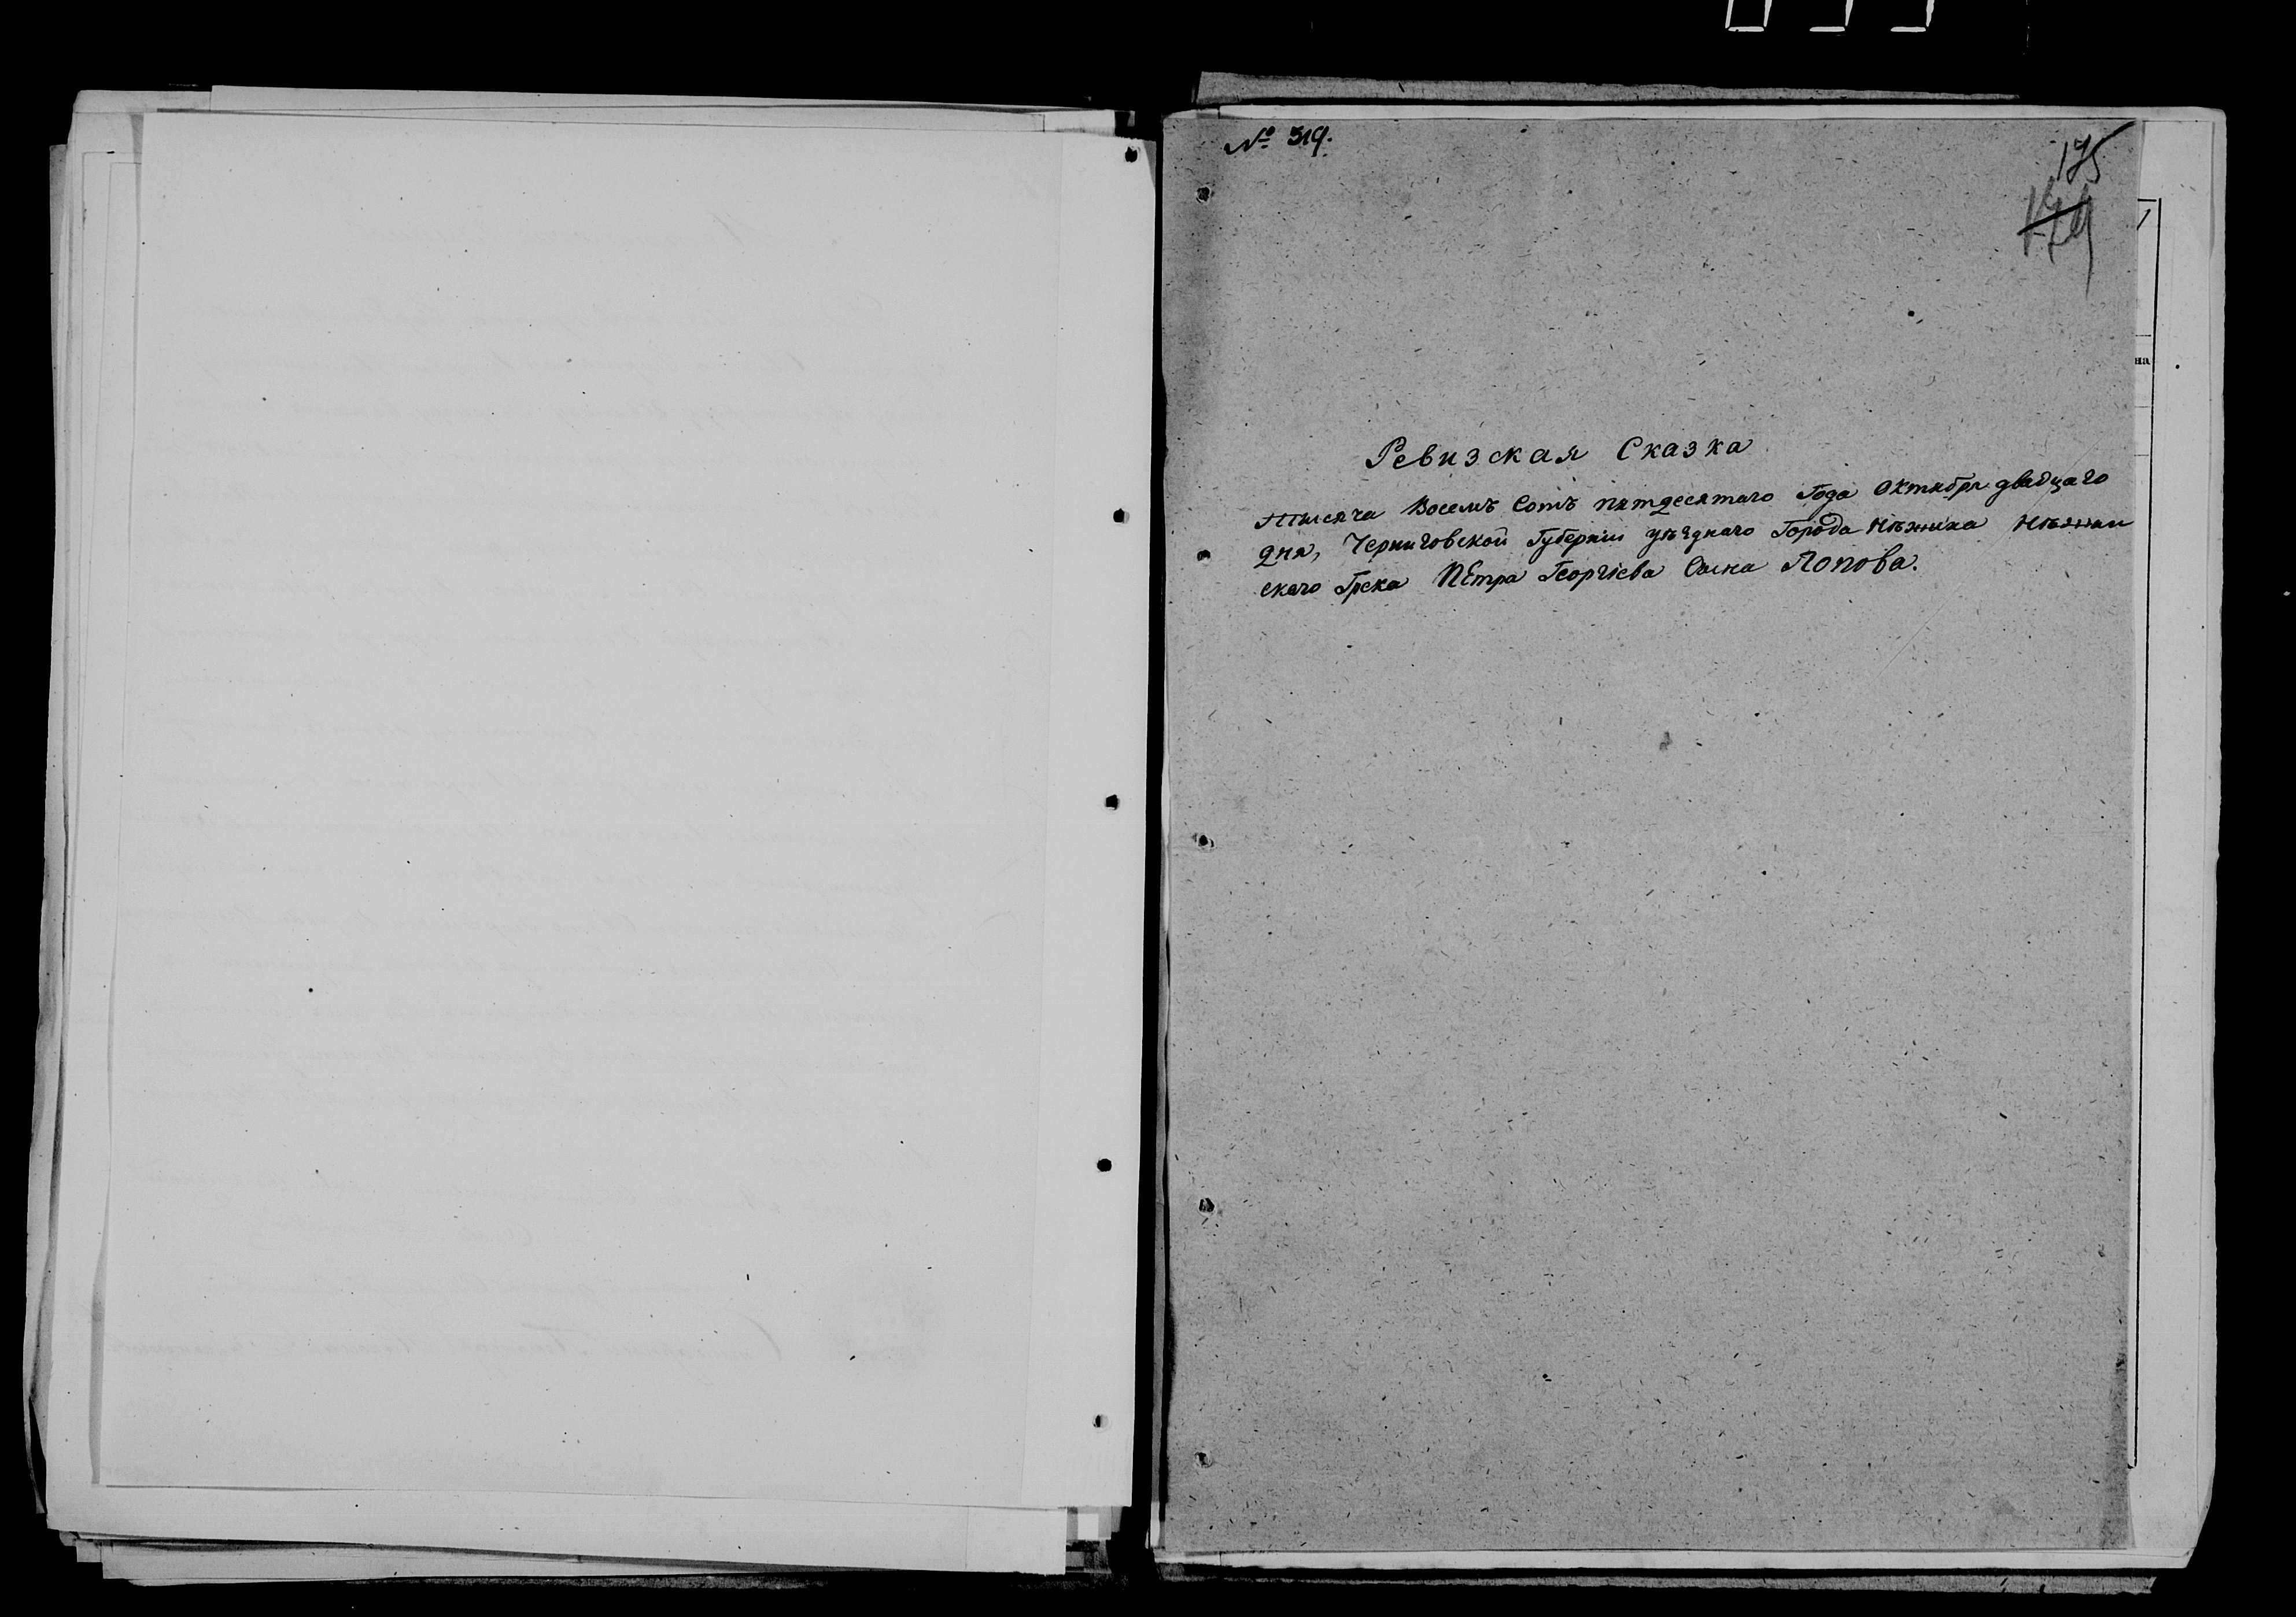 № 319.
175
174
на
Ревизская Сказка
Тысяча Восемъ Сотъ пятдесятаго Года Октября двадцаго
дня, Черниговской Губерніи уѣзднаго Города Нѣжина Нѣжин
скаго Грека Пѣтра Георгіева Сына Попова.